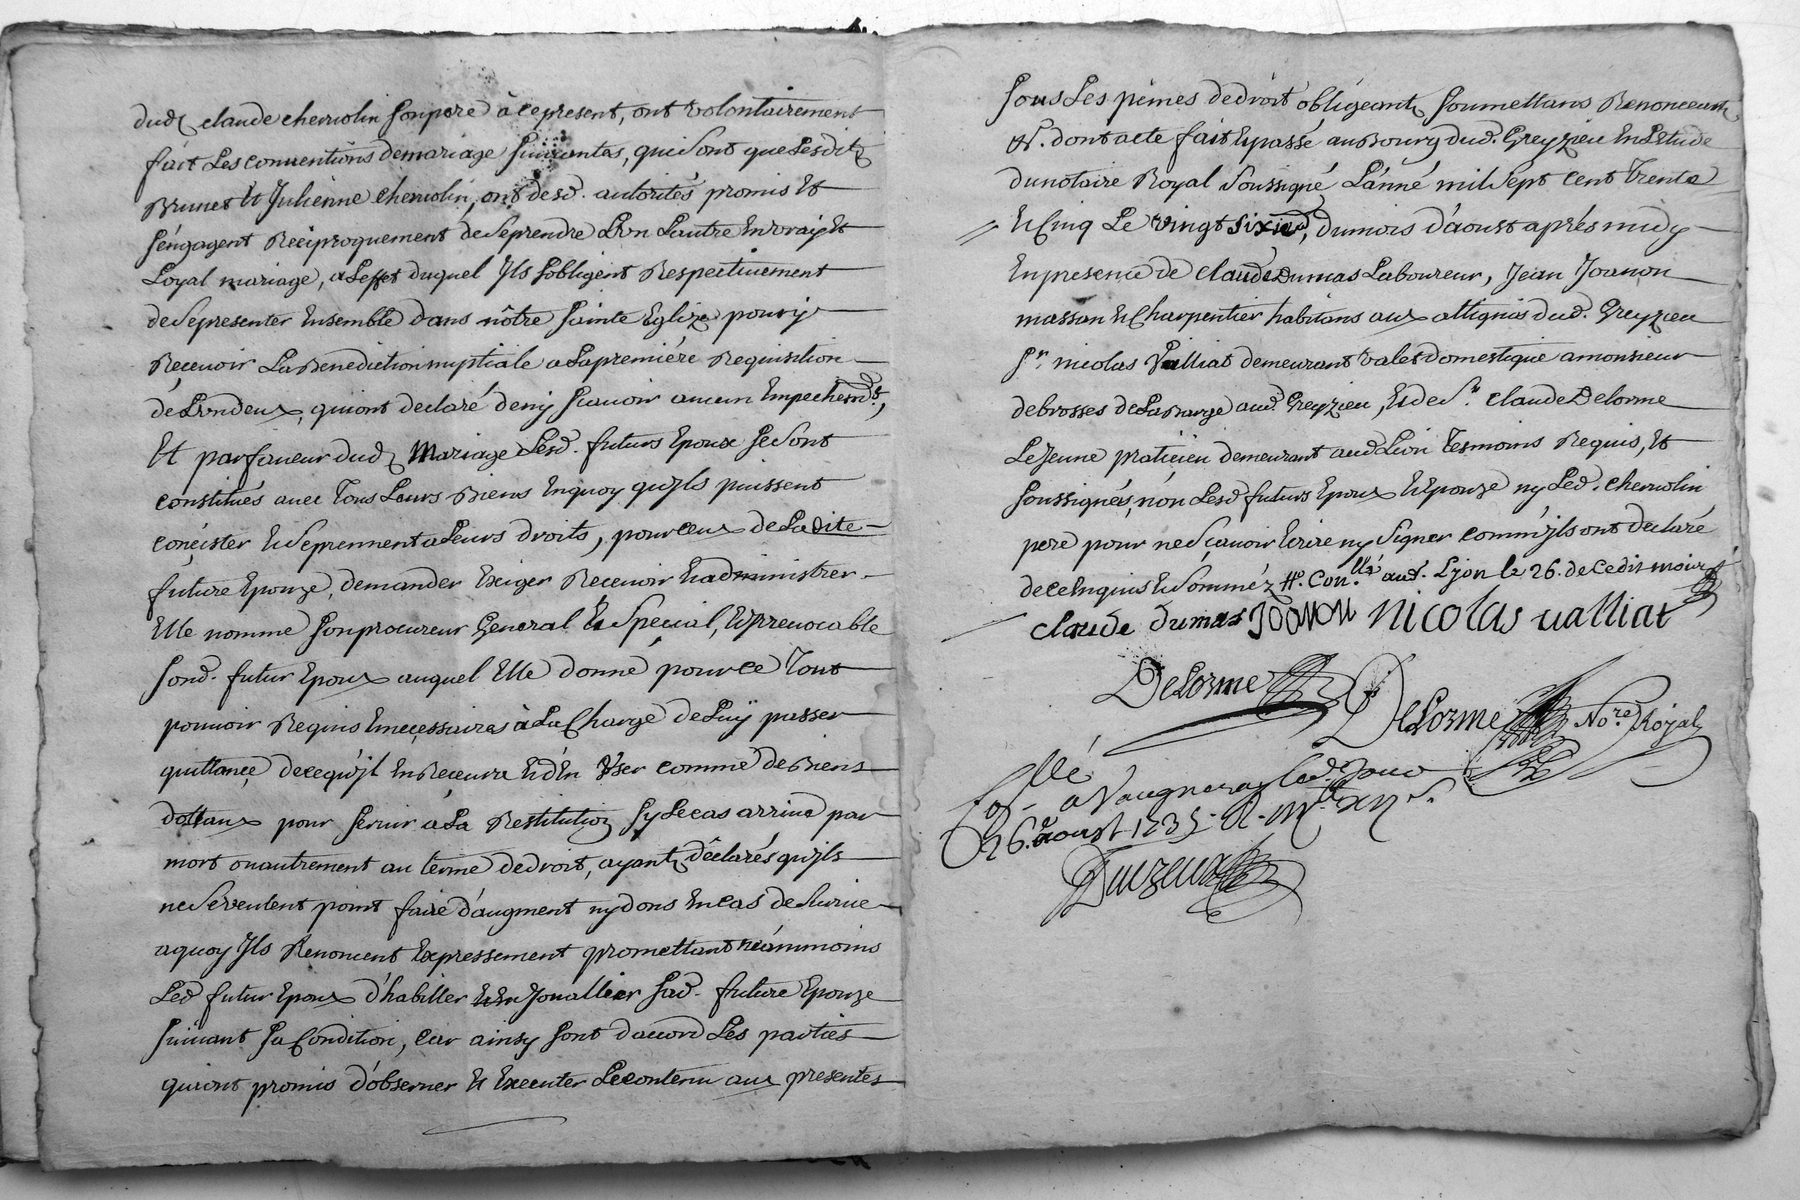 dud. claude cherviolin son pere à ce present, ont volontairement
fait Les conventions de mariage suivantes, qui sont que Lesdits
Brunet Et Julienne cherviolin, ont desd. autorités promis Et
s'engagent Reciproquement de se prendre L'vn L'autre En vray Et
Loyal mariage, a L'effet duquel Ils s'obligent Respectivement
de se presenter Ensemble dans nôtre sainte Eglize pour y
Recevoir La Benediction nuptiale a La premiére Requisition
de L'vn deux, qui ont declaré de ny scavoir aucun Empechemts,
Et par faveur dud. Mariage Lesd. futurs Epoux se sont
constitués avec Tous Leurs Biens En quoy qu'ils puissent
conçister Et se prennent a Leurs droits, pour ceux de La dite
future Epouze, demander Exiger Recevoir Et administrer
Elle nomme son procureur General Et Special, Et Irrevocable
sond. futur Epoux auquel Elle donne pour ce Tout
pouvoir Requis Et neçessaires à La Charge de Luy passer
quittançe de ce qu'jl En Recevra Et d'En Vser comme de Biens
dottaux pour servir à La Restitution sy Le cas arrive par
mort ou autrement au terme de droit, ayant déclarés qu'jls
ne se veulent point faire d'augment ny dons En cas de Survie
a quoy Jls Renoncent Expressement promettant néammoins
Led. futur Epoux d'habiller Et En Jouallier sad. future Epouze
suivant sa Condition, car ainsy sont d'accord Les parties
qui ont promis d'observer Et Executer Le contenu aux presentes
sous Les peines de droit obligeant soumettans Renonceant
&c. dont acte fait Et passé au Bourg dud. Greyzieu En L'Etude
du notaire Royal soussigné L'anné mil sept cent trente
Et Cinq Le vingt sixie, du mois d'aoust aprés midy
En presence de claude Dumas Laboureur, Jean Joanon
masson Et Charpentier habitans aux attignies dud. Greyzieu
sr. nicolas Valliat demeurant valet domestique a monsieur
debrosses de La Barge aud. Greyzieu, Et de Sr. Claude Delorme
Le Jeune praticien demeurant aud. Lion Tesmoins Requis, Et
soussignés, non Lesd. futurs Epoux Et Epouze ny Led. cherviolin
pere pour ne Sçavoir Ecrire ny Signer comm'jls ont declaré
de ce Enquis Et Sommés &. Con.llé aud. Lyon le 26. de ce dit mois
claude dumas Joanon nicolas valliat
DeLorme DeLorme No.re Royal
llé
a Vaugneray led. Jour
26. aoust 1735.